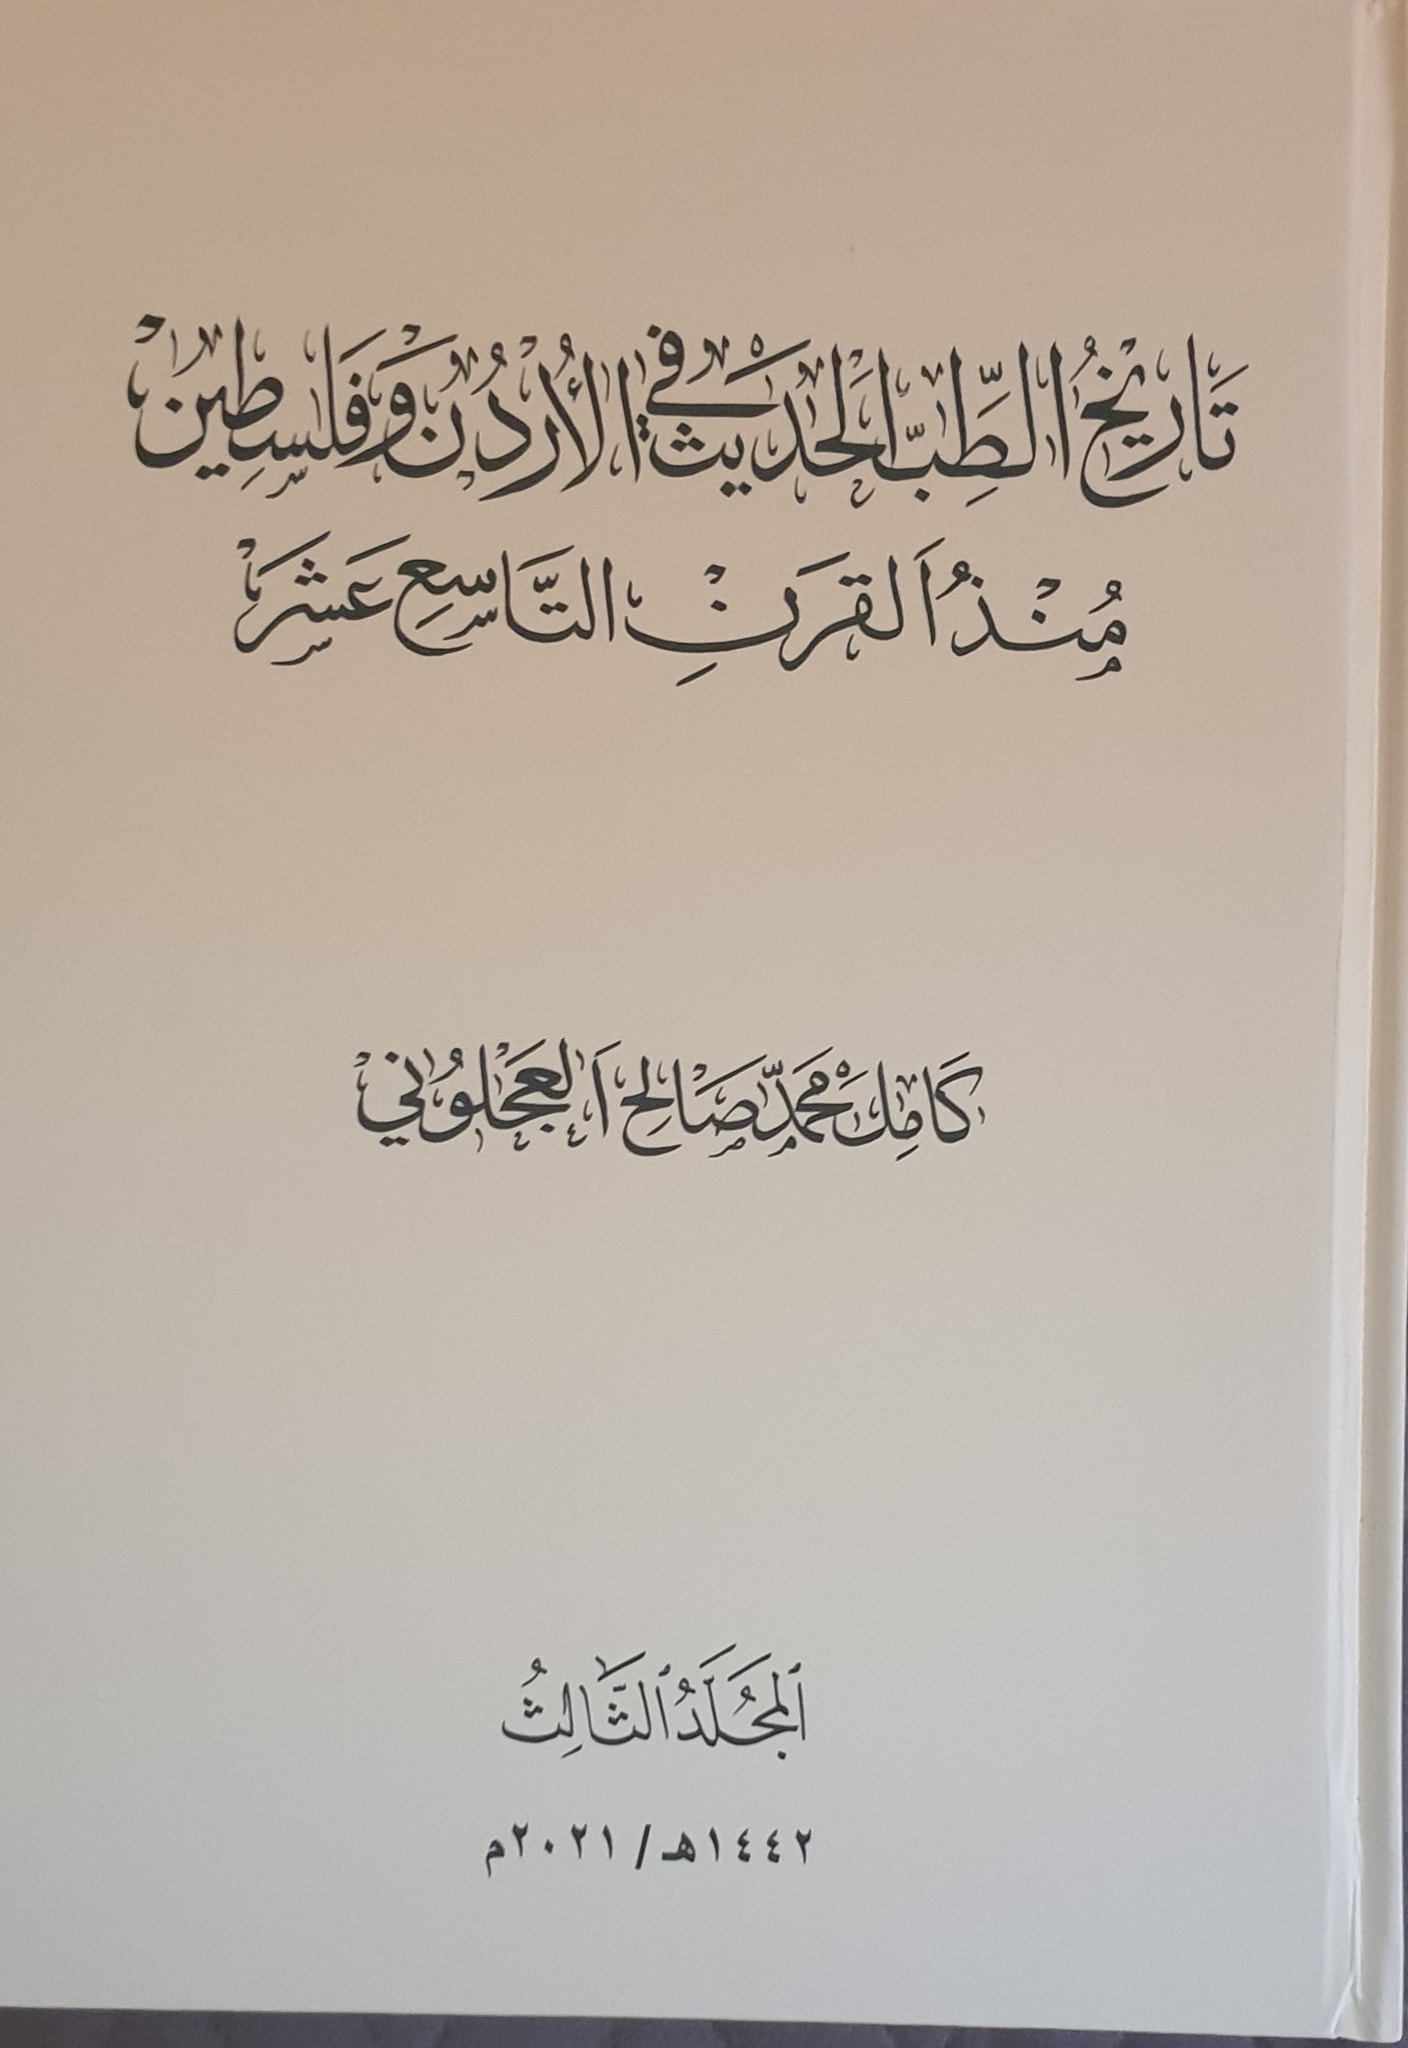 تَاريْخُ الطِّبِّ الحَديْثِ في الأُرْدُن وَفَلسِطِين
مُنْذُ القَرنِ التَّاسِعِ عَشَر
كَامِل محَمّد صَالِح العَجْلُوني
المجُلَّدُ الثَّالِثُ
١٤٤٢هـ/٢٠٢١م